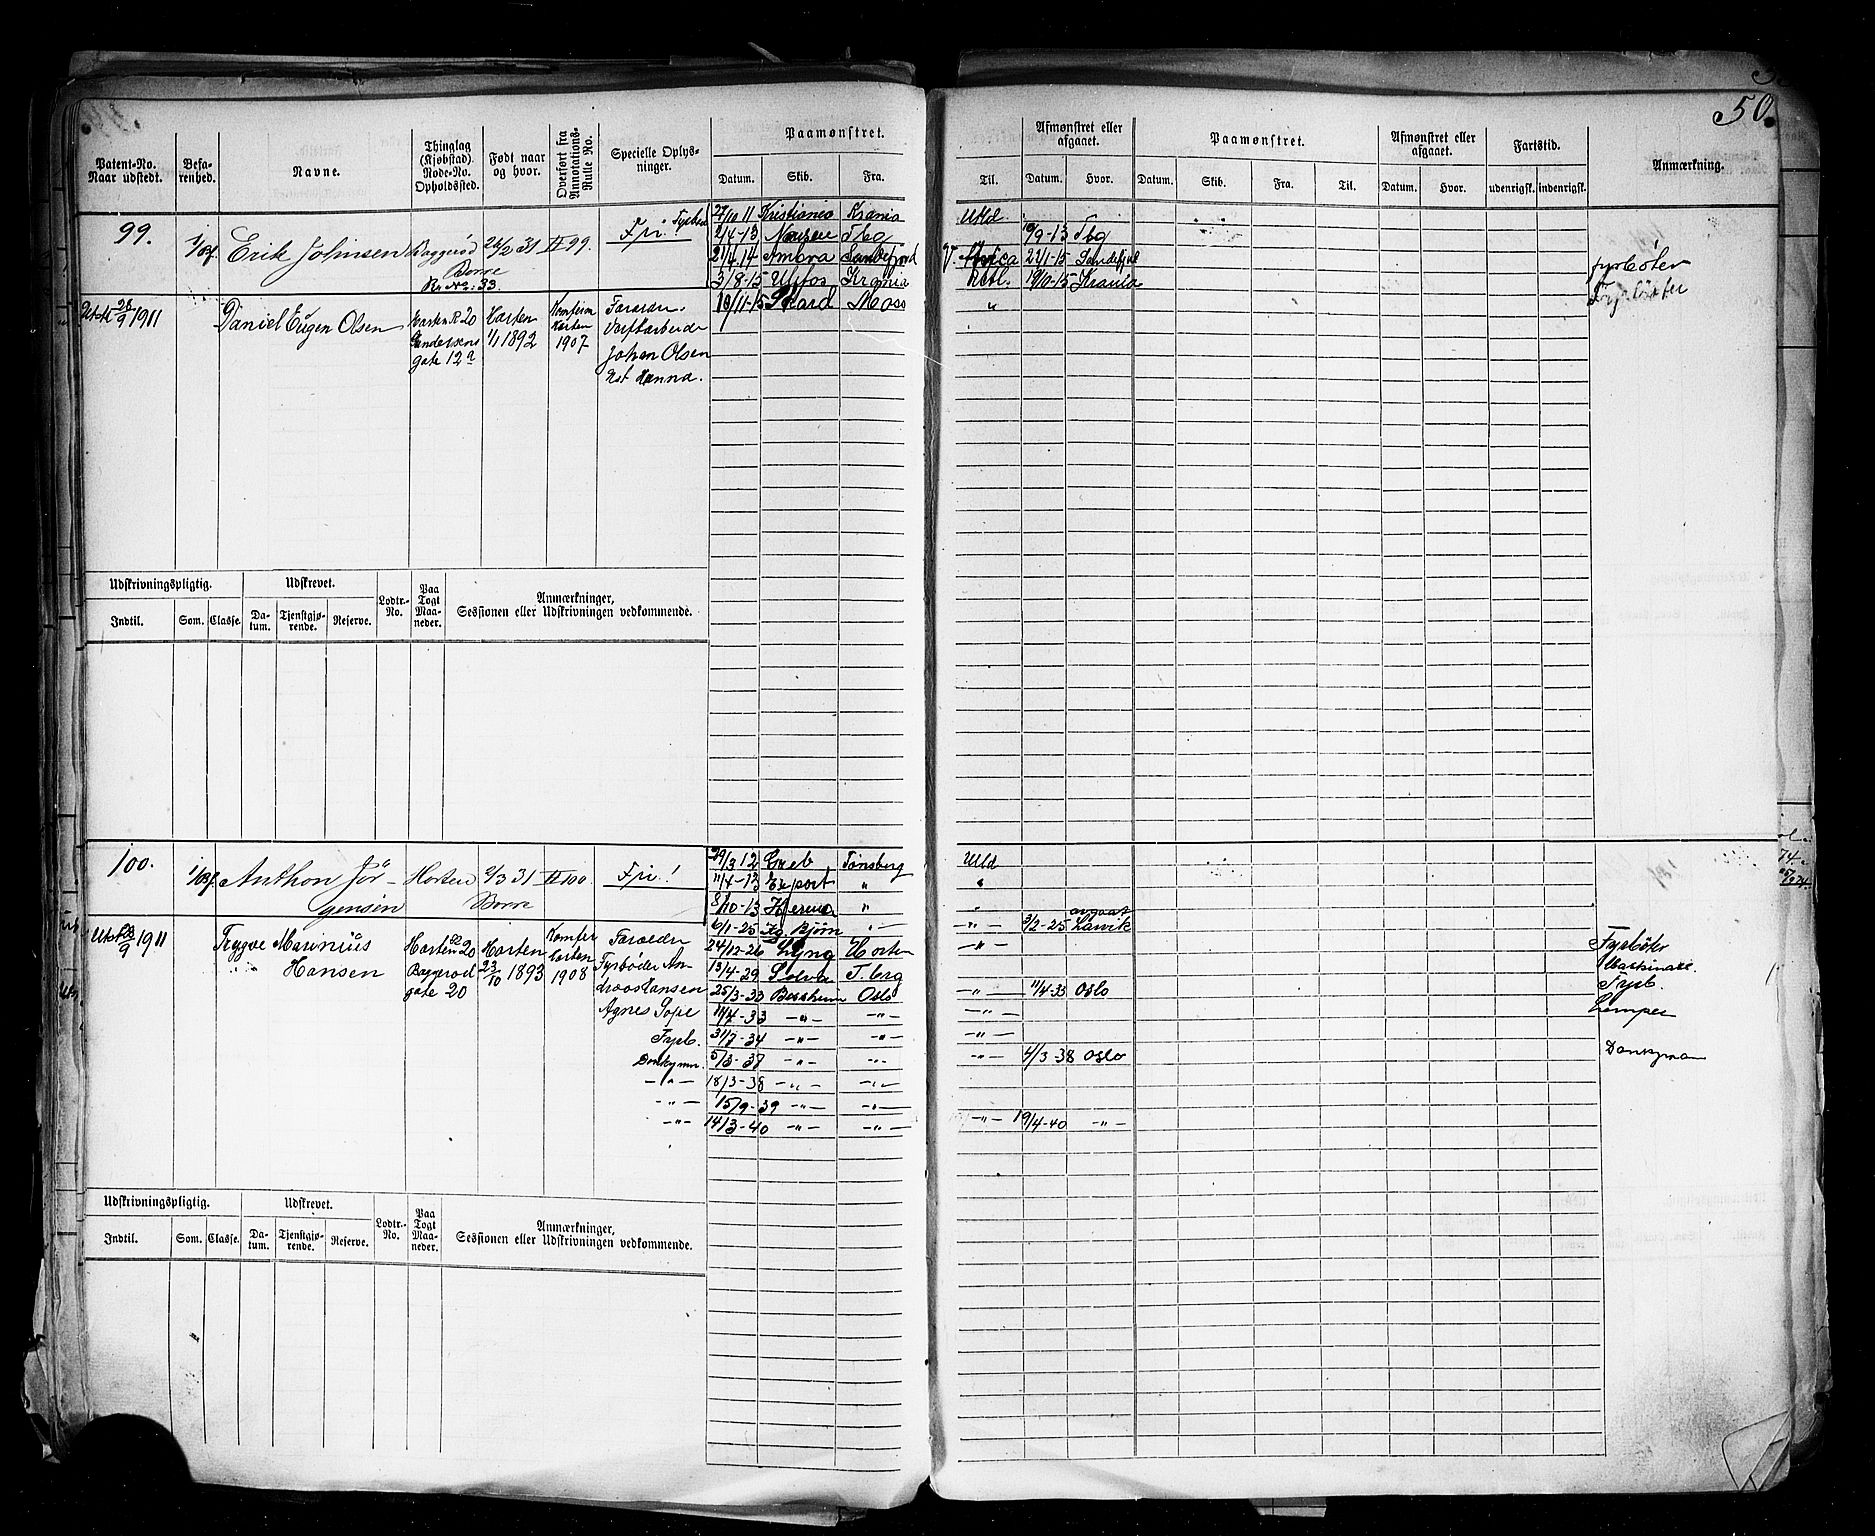 50.
Patent-No. Naar udstedt.
Befarenhed.
Navne.
Thinglag (Kjøbstad). Rode-No. Opholdssted.
Født naar og hvor.
Overført fra Annotations-Rulle No.
Specielle Oplysninger.
Paamønstret.
Datum. Skib. Fra. Til.
Afmønstret eller afgaaet.
Datum. Hvor.
Paamønstret.
Datum. Skib. Fra. Til.
Afmønstret eller afgaaet.
Datum. Hvor.
Fartstid.
udenrigsk. indenrigsk.
Anmærkning.
99.
Erik Johnsen
Baggerød
Borre
R. No: 33
II 99.
Fri! Fyrbød
27/10 11 Kristiania Krania Utld
2/4-13 Tbg 10/9-13 Tbg
21/4.14 Ambra Sandefjord V. Africa 24/1-15 Sandefjord fyrbøter
3/8-15 Ulefos Krania 19/10-15 Krania Fyrbøter
19/11-15 Skard Moss "
28/9 1911
Daniel Eugen Olsen
Horten R 20
Gate 12a
Horten
1/1 1892
Konfirm
Horten
1907
Forældre.
Værftarbeider
Johan Olsen
Hanna.
Udskrivningspligtig. Udskrevet. Lodtr.-No. Paa Togt Maaneder. Anmærkninger,
Sessionen eller Udskrivningen vedkommende.
Indtil. Som. Classe. Datum. Tjenstgjørende. Reserve.
100.
Anthon Jør-
gensen
Horten
2/3 31
Borre
II 100.
Fri!
29/3 12 Greb Tønsberg Utld
11/4-13 Export "
8/10-13 "
6/1-25 Bjørn 3/2-25 Larvik
avgaat
24/12-26 Lyng Horten Fyrbøter
13/4-29 Solva T.berg
25/3-33 Bessheim Oslo -"- 11/4-33 Oslo Fyrb.
11/4-33 -"- -"- -"- Lemper
31/7-34 -"- -"- -"-
5/3-37 -"- -"- -"- 4/3 38 Oslo Donkyman
18/3-38 -"- -"-
15/9-39 -"- -"-
14/3-40 -"- -"- -"- 19/4-40 -"-
28/9 1911
Trygve Marinius
Hansen
Horten 20
Baggerød
gate 20
Horten
23/10 1893
Konfir
Horten
1908
Foreldre
Fyrbøder An-
Agnes
Fyrb.
Donkymn.
-"-
-"-
-"-
Udskrivningspligtig. Udskrevet. Lodtr.-No. Paa Togt Maaneder. Anmærkninger,
Sessionen eller Udskrivningen vedkommende.
Indtil. Som. Classe. Datum. Tjenstgjørende. Reserve.